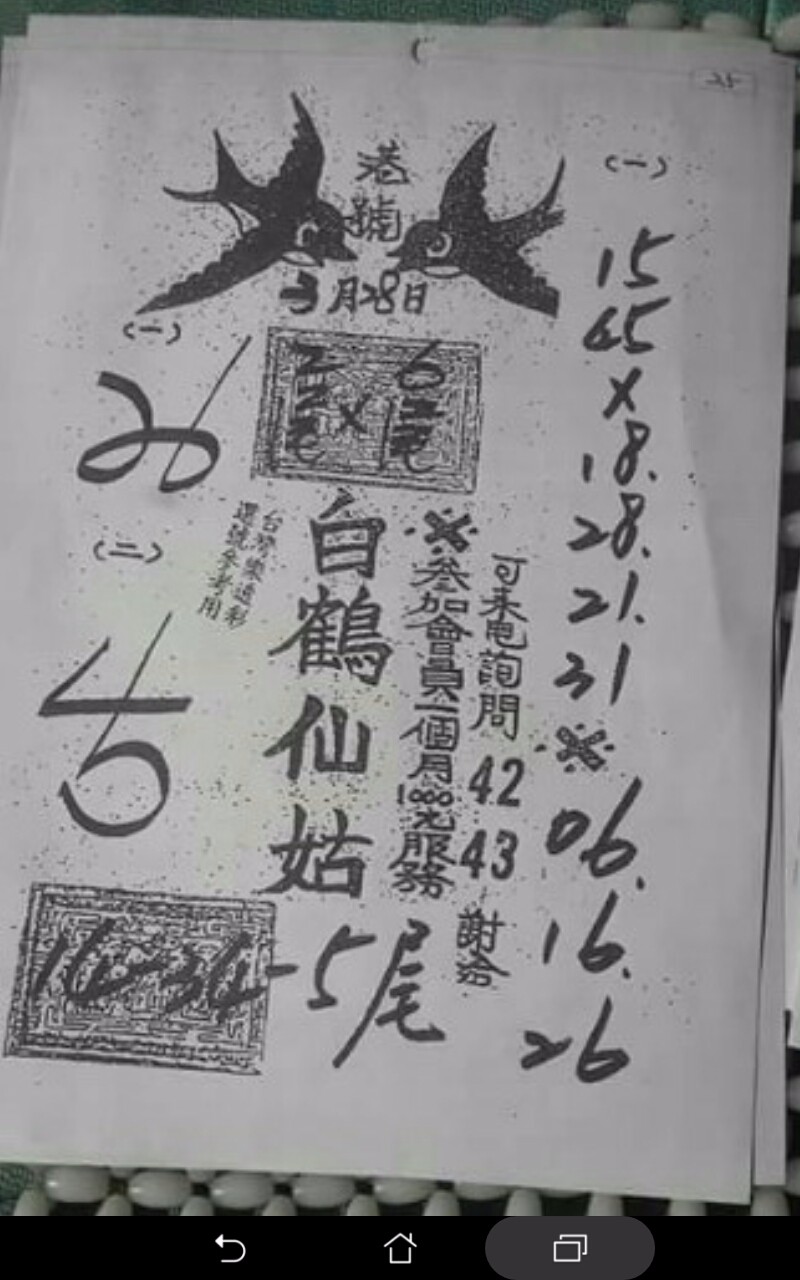 25
港號
3月28日
(一)
15
45
×
18.
28.
21.
31
※
06.
16.
26
(一)
2尾
×
6尾
(二)
台灣樂透彩
選號參考用
白鶴仙姑
※參加會員一個月1000元服務
可來电詢問 42 43 謝洽
14-34-5尾